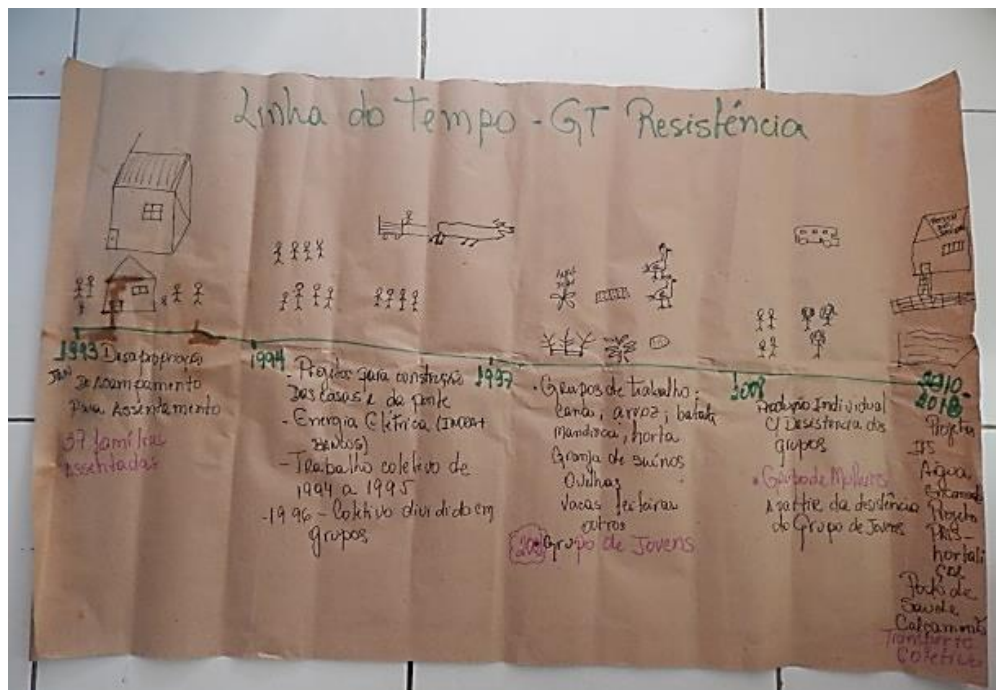 Linha do Tempo - GT Resistência
1993 Desapropriação
JAN De Acampamento
Para Assentamento
37 famílias
Assentadas
1994
- Projetos para construção
Das casas e da ponte
- Energia Elétrica (INCRA +
BANCOS)
- Trabalho coletivo de
1994 a 1995
- 1996 - Coletivo dividido em
grupos
1997
• Grupos de trabalho:
cana, arroz, batata
mandioca, horta
Granja de suínos
Ovelhas
Vacas leiteiras
outros
Grupo de Jovens
2008
Produção Individual
C/ Desistência dos
grupos
• Grupo de Mulheres
A partir da desistência
do Grupo de Jovens
2010-
2018
Projeto
Água
Encanada
Projeto
PAIS-
hortali
ças
Posto de
Saúde
Calçamento
Transporte
Coletivo